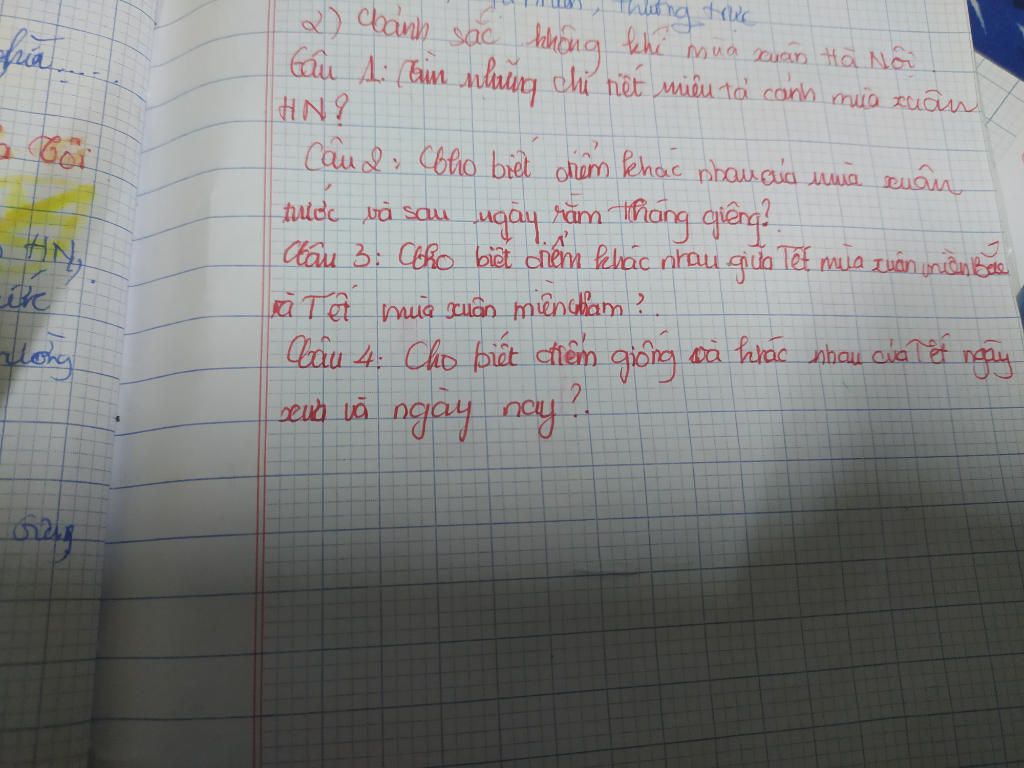 thường trực
2) Cảnh sắc không khí mùa xuân Hà Nội.
Câu 1: Tìm những chi tiết miêu tả cảnh mùa xuân
HN?
Câu 2: Cho biết điểm khác nhau của mùa xuân
trước và sau ngày rằm tháng giêng?
Câu 3: Cho biết điểm khác nhau giữa Tết mùa xuân miền Bắc
và Tết mùa xuân miền Nam?
Câu 4: Cho biết điểm giống và khác nhau của Tết ngày
xưa và ngày nay?
Tôi
HN,